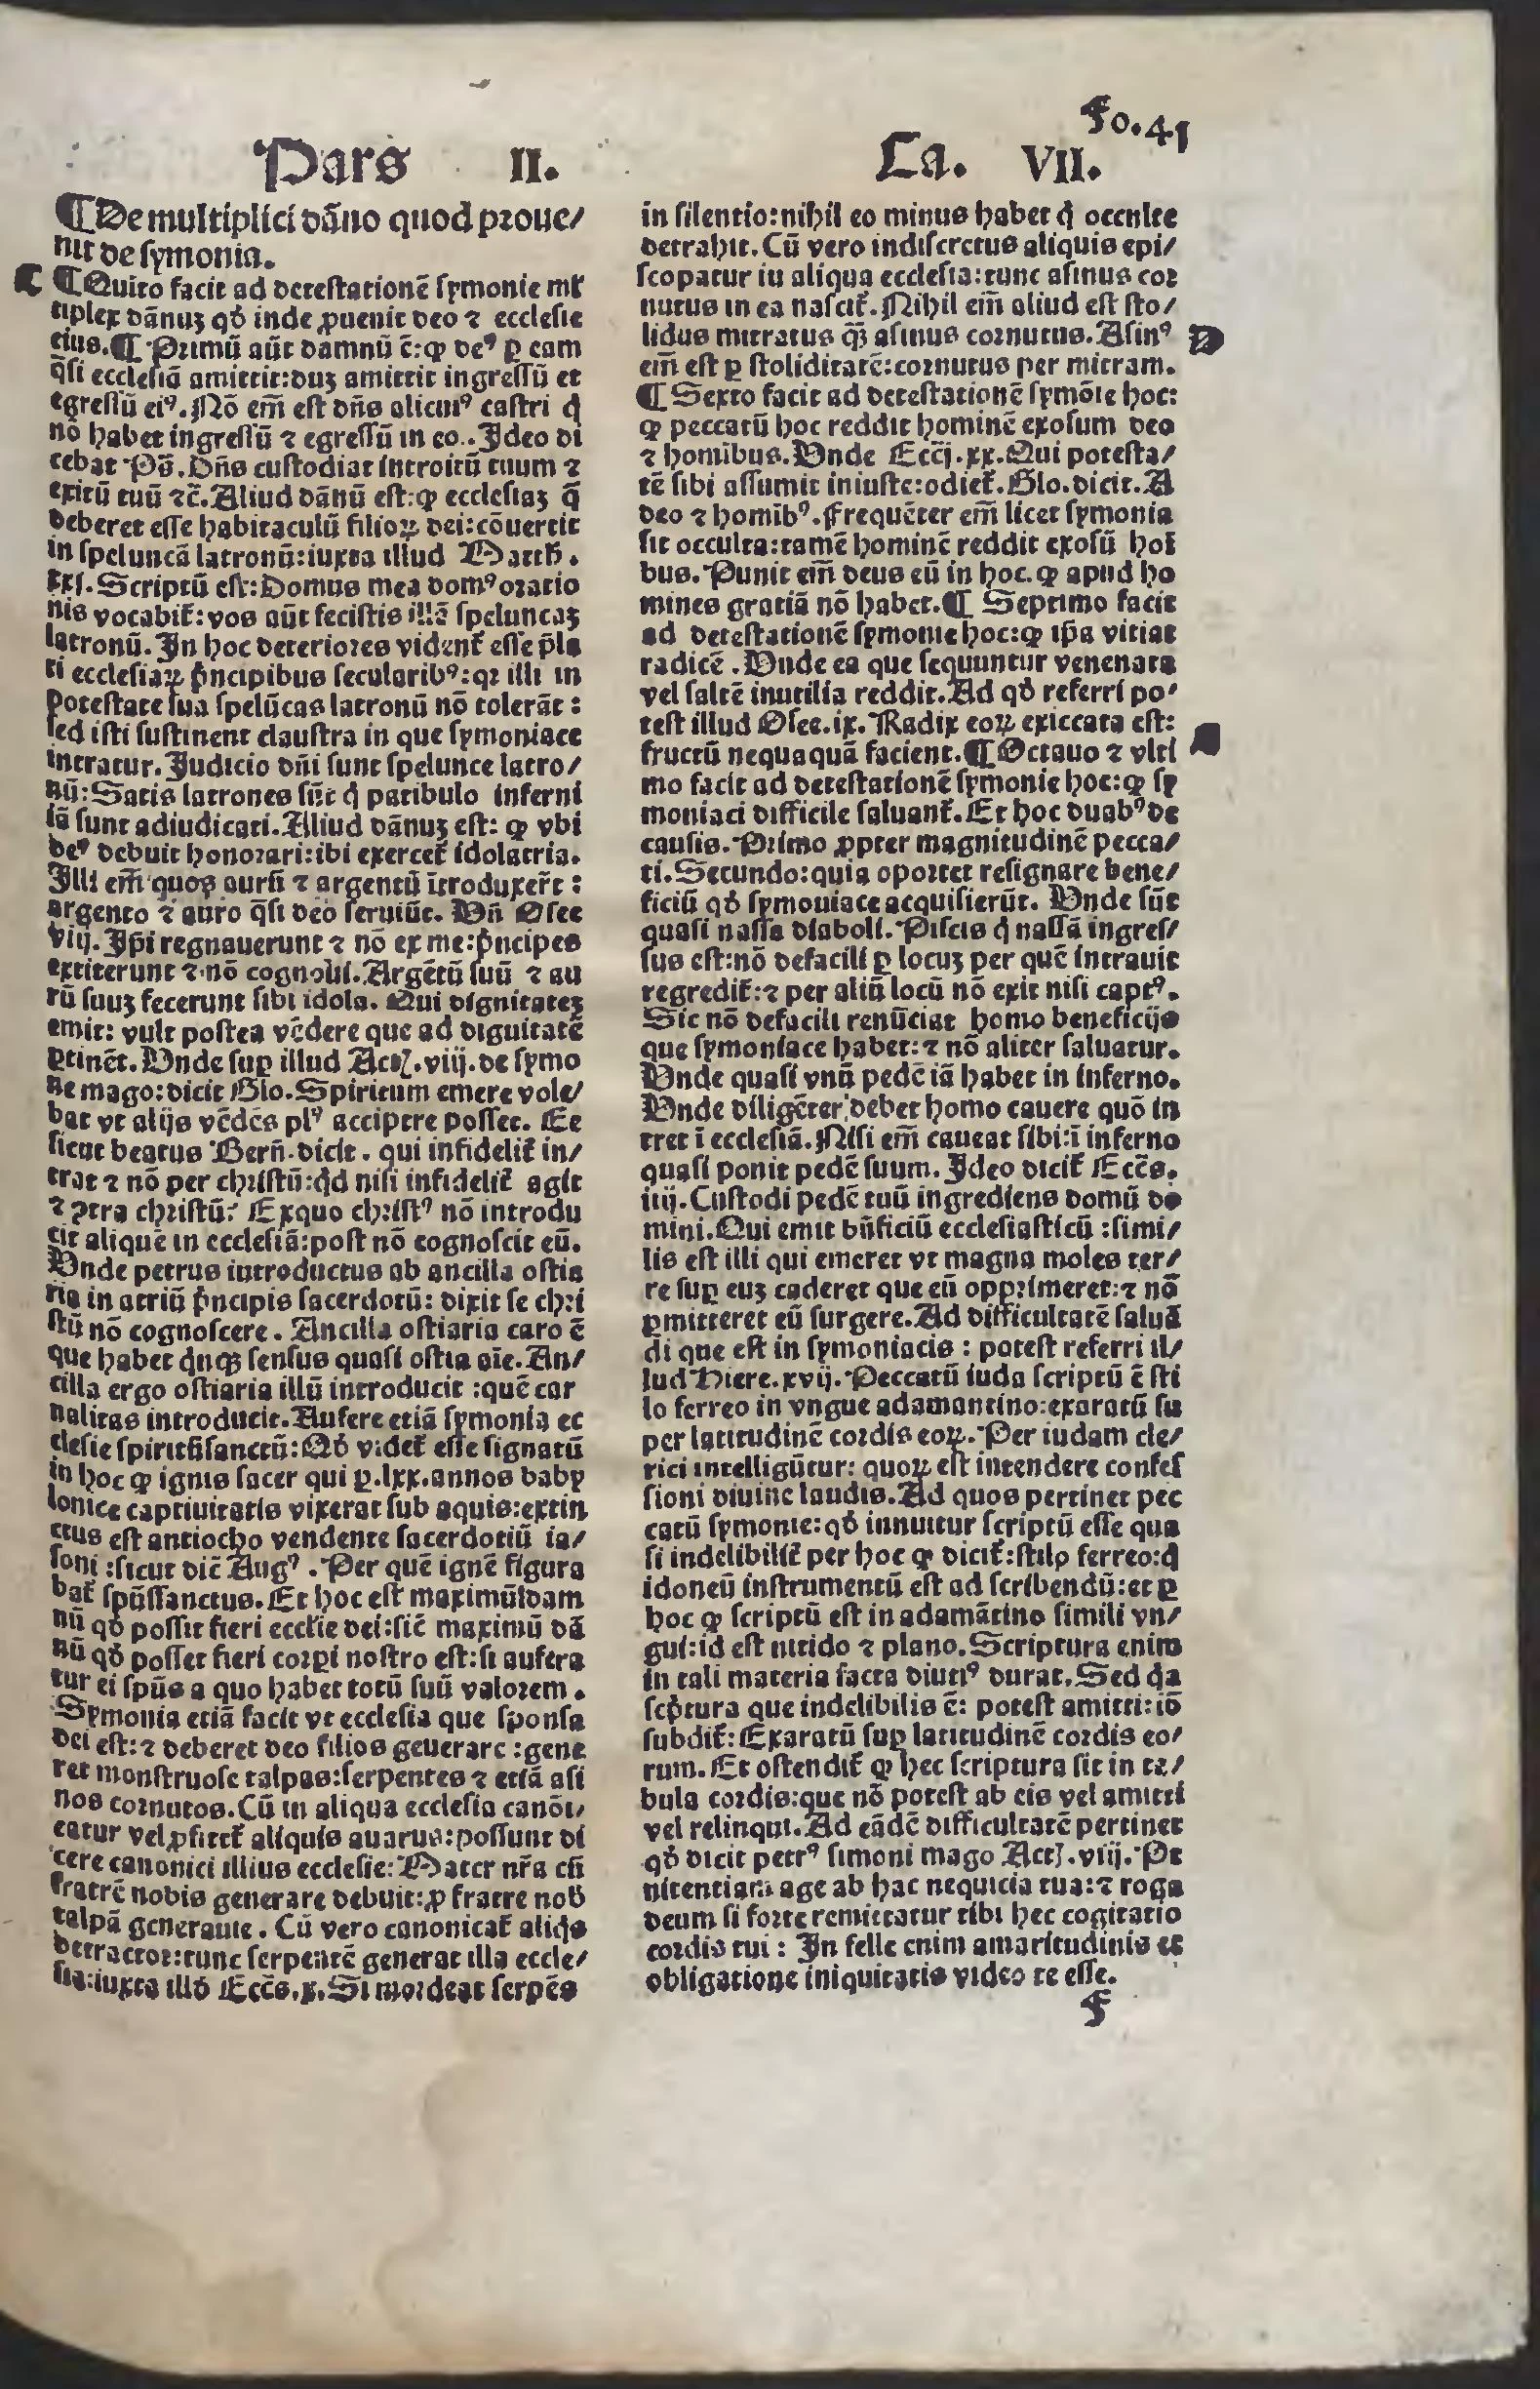 Fo.41
Pars II. Ca. VII.
¶De multiplici dãno quod proue/
nit de symonia.
C ¶Quito facit ad detestationẽ symonie ml̃
tiplex dãnuȝ qḋ inde ꝓuenit deo ⁊ ecclesie
eius.¶ Primũ aũt damnũ ẽ:ꝙ deꝰ ꝑ eam
q̃si ecclesiã amittit:duȝ amittit ingressũ et
egressũ eiꝰ. Nõ em̃ est dñs alicuiꝰ castri q̇
nõ habet ingressũ ⁊ egressũ in eo.. Ideo di
cebat Pš. Dñs custodiat introitũ tuum ⁊
exitũ tuũ ⁊c̃. Aliud dãnũ est:ꝙ ecclesiaȝ q̃
deberet esse habitaculũ filioꝝ dei:cõuertit
in speluncã latronũ:iuxta illud Matth̃.
xxi. Scriptũ est:Domus mea domꝰ oratio
nis vocabit̃: vos aũt fecistis illã speluncaȝ
latronũ. In hoc deteriores vident̃ esse p̃la
ti ecclesiaꝝ p̃ncipibus secularibꝰ:qꝛ illi in
potestate sua spelũcas latronũ nõ tolerãt:
sed isti sustinent claustra in que symoniace
intratur. Judicio dñi sunt spelunce latro/
nũ: Satis latrones sũt q̇ patibulo inferni
iã sunt adiudicati. Aliud dãnuȝ est: ꝙ vbi
deꝰ debuit honorari:ibi exercet̃ idolatria.
Illi em̃ quos aurũ ⁊ argentũ ĩtroduxer̃t:
argento ⁊ auro q̃si deo seruiũt. Vñ Osee
viij. Ip̃i regnauerunt ⁊ nõ ex me:p̃ncipes
extiterunt ⁊ nõ cognoui. Argẽtũ suũ ⁊ au
rũ suuȝ fecerunt sibi idola. Qui dignitateȝ
emit: vult postea vẽdere que ad diguitatẽ
ꝑtinẽt. Vnde suꝑ illud Act. viij. de symo
ne mago:dicit Glo. Spiritum emere vole/
bat vt alijs vẽdẽs plꝰ accipere posset. Et
sicut beatus Berñ. dicit. qui infidelit̃ in/
trat ⁊ nõ per christũ:q̇d nisi infidelit̃ agit
⁊ ꝯtra christũ: Exquo christꝰ nõ introdu
cit aliquẽ in ecclesiã:post nõ cognoscit eũ.
Vnde petrus introductus ab ancilla ostia
ria in atriũ p̃ncipis sacerdotũ: dixit se chri
stũ nõ cognoscere. Ancilla ostiaria caro ẽ
que habet q̇nqꝫ sensus quasi ostia aĩe. An/
cilla ergo ostiaria illũ introducit :quẽ car
nalitas introducit. Aufere etiã symonia ec
clesie spiritũsanctũ: Qḋ videt̃ esse signatũ
in hoc ꝙ ignis sacer qui ꝑ.lxx.annos baby
lonice captiuitatis vixerat sub aquis:extin
ctus est antiocho vendente sacerdotiũ ia/
soni :sicut dic̃ Augꝰ. Per quẽ ignẽ figura
bat̃ spũssanctus. Et hoc est maximũ dam
nũ qḋ possit fieri ecclĩe dei:sic̃ maximũ dã
nũ qḋ posset fieri corpi nostro est:si aufera
tur ei spũs a quo habet totũ suũ valorem.
Symonia etiã facit vt ecclesia que sponsa
dei est:⁊ deberet deo filios geuerare :gene
ret monstruose talpas:serpentes ⁊ etiã asi
nos cornutos. Cũ in aliqua ecclesia canõi/
catur vel ꝓficit̃ aliquis auarus:possunt di
cere canonici illius ecclesie: Mater nr̃a cũ
fratrẽ nobis generare debuit:ꝓ fratre nob̃
talpã generauit. Cũ vero canonicat̃ aliq̇s
detractor:tunc serpentẽ generat illa eccle/
sia:iuxta illḋ Ecc̃s.x. Si mordeat serpẽs
in silentio:nihil eo minus habet q̇ occulte
detrahit. Cũ vero indiscretus aliquis epi/
scopatur iu aliqua ecclesia:tunc asinus cor
nutus in ea nascit̃. Nihil em̃ aliud est sto/
lidus mitratus q̃ȝ asinus cornutus. Asinꝰ D
em̃ est ꝑ stoliditatẽ:cornutus per mitram.
¶ Sexto facit ad detestationẽ symõie hoc:
ꝙ peccatũ hoc reddit hominẽ exosum deo
⁊ homĩibus. Vnde Eccj̃.xx. Qui potesta/
tẽ sibi assumit iniuste:odiet̃. Glo. dicit. A
deo ⁊ homĩbꝰ. Frequẽter em̃ licet symonia
sit occulta:tamẽ hominẽ reddit exosũ hoĩ
bus. Punit em̃ deus eũ in hoc. ꝙ apud ho
mines gratiã nõ habet.¶ Septimo facit
ad detestationẽ symonie hoc:ꝙ ip̃a vitiat
radicẽ. Vnde ea que sequuntur venenata
vel saltẽ inutilia reddit. Ad qḋ referri po/
test illud Osee.ix. Radix eoꝝ exiccata est:
fructũ nequaquã facient.¶ Octauo ⁊ vlti
mo facit ad detestationẽ symonie hoc:ꝙ sy
moniaci difficile saluant̃. Et hoc duabꝰ de
causis. Primo ꝓpter magnitudinẽ pecca/
ti. Secundo:quia oportet resignare bene/
ficiũ qḋ symouiace acquisierũt. Vnde sũt
quasi nassa diaboli. Piscis q̇ nassã ingres/
sus est:nõ defacili ꝑ locuȝ per quẽ intrauit
regredit̃:⁊ per aliũ locũ nõ exit nisi captꝰ.
Sic nõ defacili renũciat homo beneficijs
que symoniace habet:⁊ nõ aliter saluatur.
Vnde quasi vnũ pedẽ iã habet in inferno.
Vnde diligẽter debet homo cauere quõ in
tret ĩ ecclesiã. Nisi em̃ caueat sibi:ĩ inferno
quasi ponit pedẽ suum. Ideo dicit̃ Ecc̃s.
iiij. Custodi pedẽ tuũ ingrediens domũ do
mini. Qui emit bñficiũ ecclesiasticũ :simi/
lis est illi qui emeret vt magna moles ter/
re suꝑ euȝ caderet que eũ opprimeret:⁊ nõ
ꝑmitteret eũ surgere. Ad difficultatẽ saluã
di que est in symoniacis : potest referri il/
lud Hiere.xvij. Peccatũ iuda scriptũ ẽ sti
lo ferreo in vngue adamantino:exaratũ su
per latitudinẽ cordis eoꝝ. Per iudam cle/
rici intelligũtur: quoꝝ est intendere confes
sioni diuine laudis. Ad quos pertinet pec
catũ symonie:qḋ innuitur scriptũ esse qua
si indelibilit̃ per hoc ꝙ dicit̃:stilo ferreo:q̇
idoneũ instrumentũ est ad scribendũ:et ꝑ
hoc ꝙ scriptũ est in adamãtino simili vn/
gui:id est nitido ⁊ plano. Scriptura enim
in tali materia facta diutiꝰ durat. Sed q̇a
scp̃tura que indelibilis ẽ: potest amitti:iõ
subdit̃: Exaratũ suꝑ latitudinẽ cordis eo/
rum. Et ostendit̃ ꝙ hec scriptura sit in ta/
bula cordis:que nõ potest ab eis vel amitti
vel relinqui. Ad eãdẽ difficultatẽ pertinet
qḋ dicit petrꝰ simoni mago Act. viij. Pe
nitentiam age ab hac nequicia tua:⁊ roga
deum si forte remittatur tibi hec cogitatio
cordis tui : In felle enim amaritudinis et
obligatione iniquitatis video te esse.
F